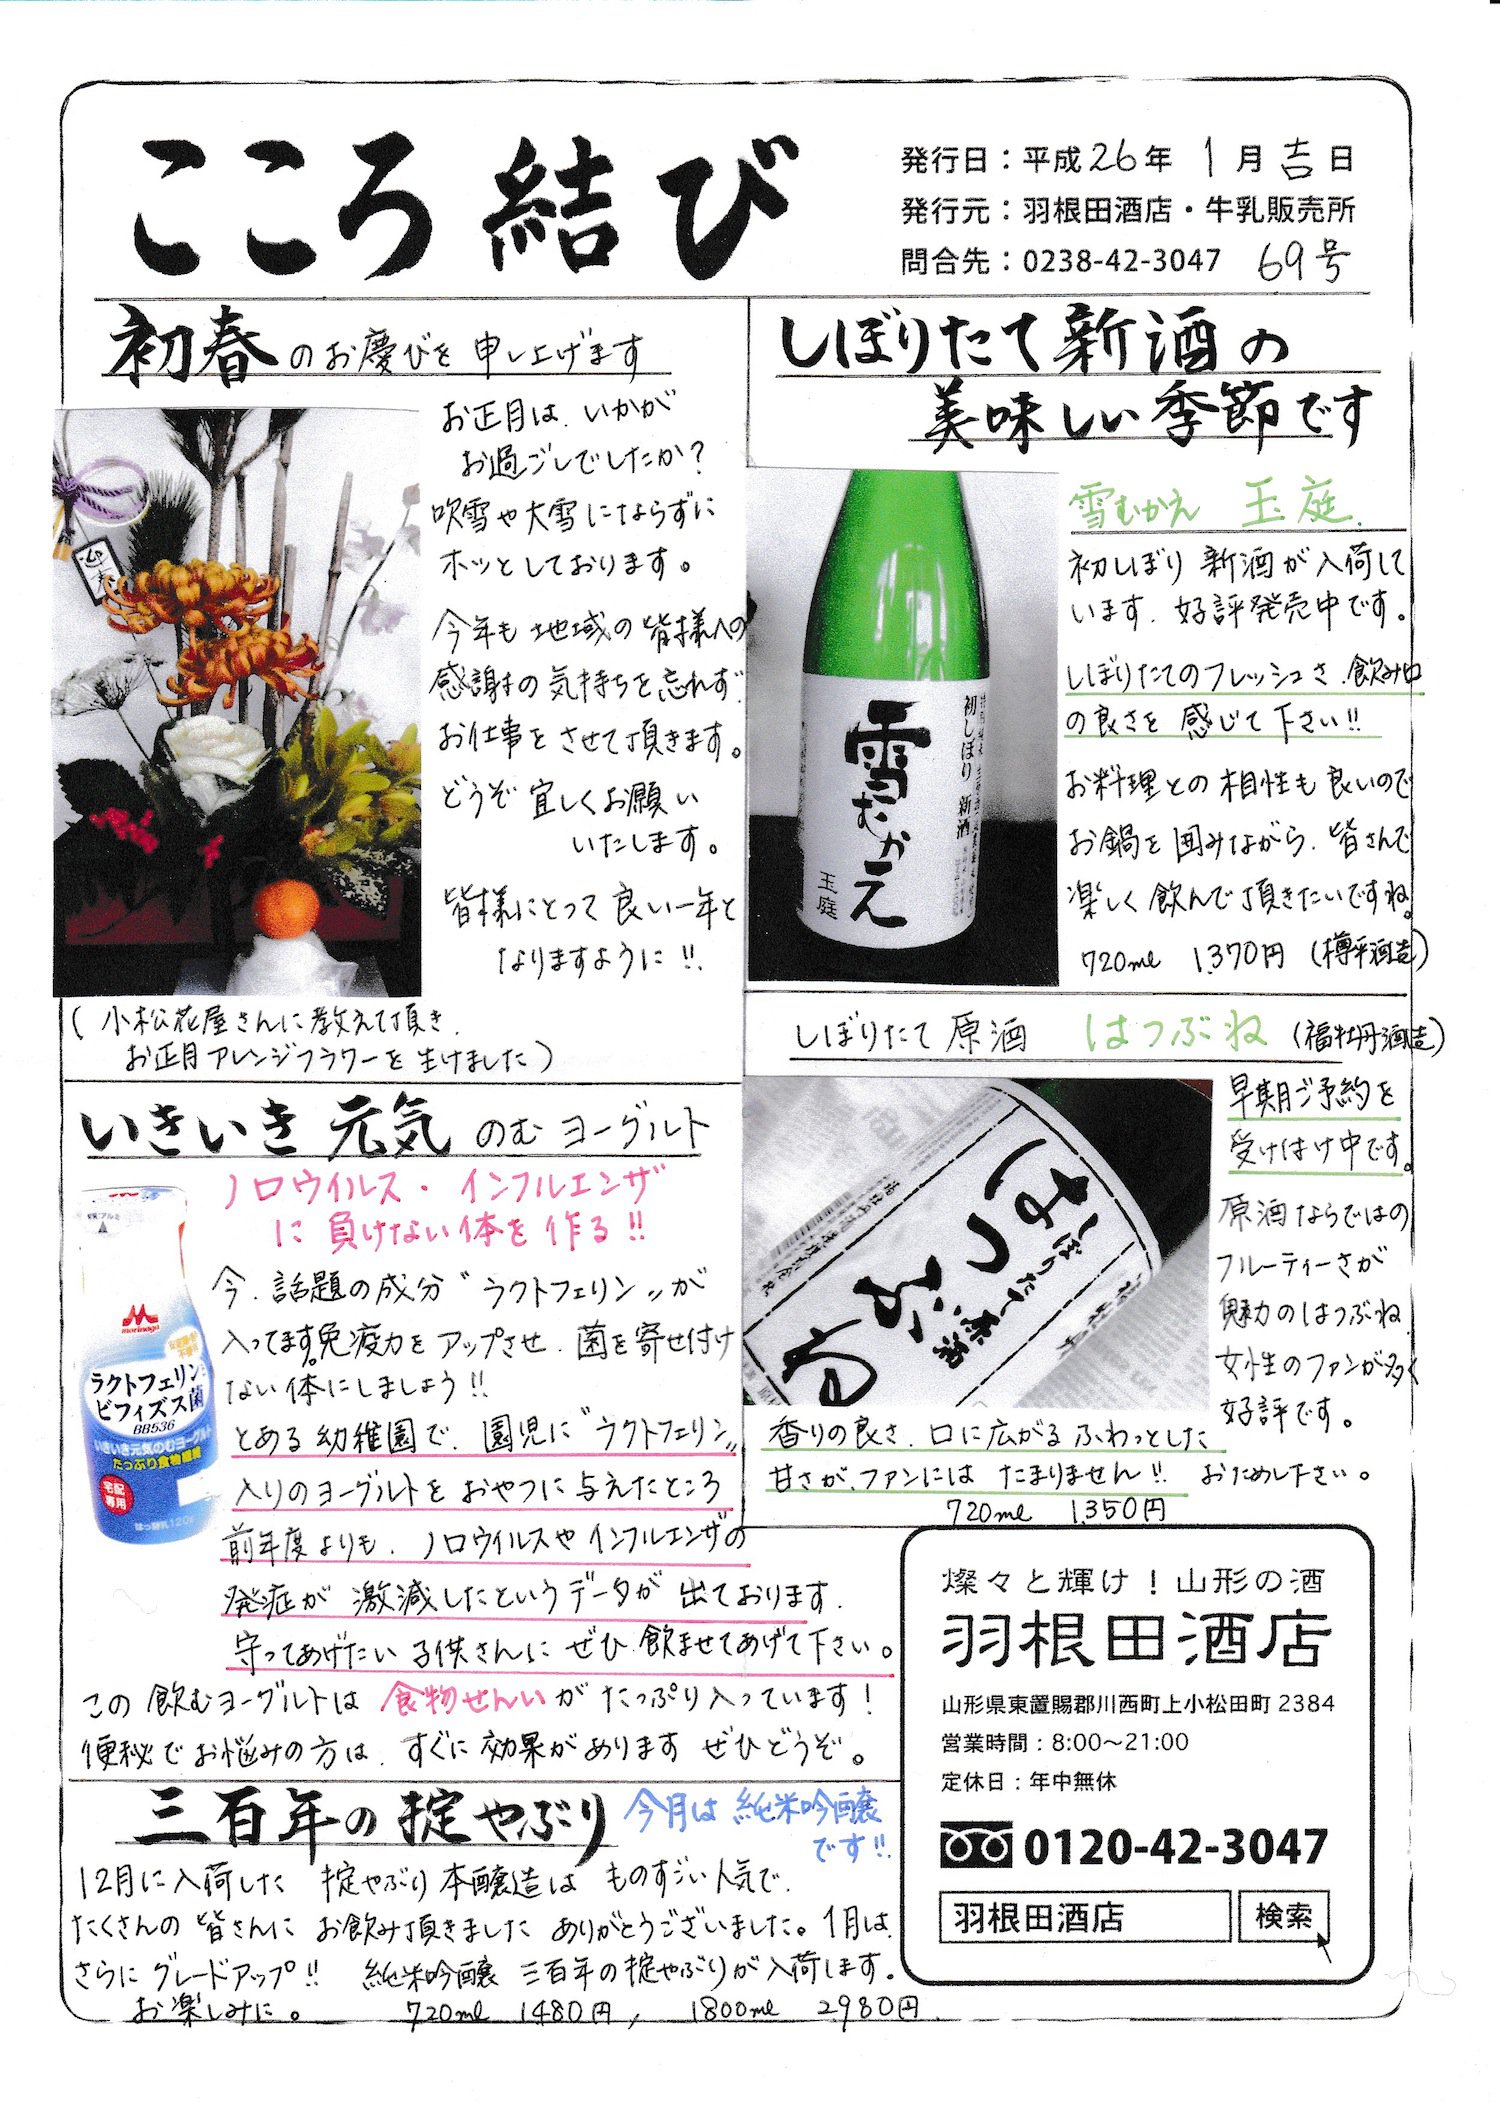 こころ結び
発行日：平成26年 1月吉日
発行元：羽根田酒店・牛乳販売所
問合先：0238-42-3047 69号
初春のお慶びを申し上げます
お正月は、いかが
お過ごしでしたか？
吹雪や大雪にならずに
ホッとしております。
今年も地域の皆様への
感謝の気持ちを忘れず
お仕事をさせて頂きます。
どうぞ宜しくお願い
いたします。
皆様にとって良い一年と
なりますように!!
(小松花屋さんに教えて頂き、
お正月アレンジフラワーを生けました)
しぼりたて新酒の
美味しい季節です
雪むかえ 玉庭
初しぼり 新酒
雪むかえ
玉庭
初しぼり 新酒が入荷して
います。好評発売中です。
しぼりたてのフレッシュさ、飲み口
の良さを感じて下さい!!
お料理との相性も良いので
お鍋を囲みながら、皆さんで
楽しく飲んで頂きたいですね。
720ml 1,370円 (樽平酒造)
しぼりたて原酒 はつぶね (福牡丹酒造)
はつぶね
しぼりたて原酒
早期ご予約を
受け付け中です。
原酒ならではの
フルーティーさが
魅力のはつぶね
女性のファンが多く
好評です。
香りの良さ、口に広がるふわっとした
甘さが、ファンにはたまりません!! おためし下さい。
720ml 1,350円
いきいき元気のむヨーグルト
ノロウイルス・インフルエンザ
に負けない体を作る!!
morinaga
ラクトフェリン
ビフィズス菌
BB536
いきいき元気のむヨーグルト
たっぷり食物繊維
宅配
専用
はっ酵乳 120g
今、話題の成分〝ラクトフェリン〟が
入ってます。免疫力をアップさせ、菌を寄せ付け
ない体にしましょう!!
とある幼稚園で、園児に〝ラクトフェリン〟
入りのヨーグルトをおやつに与えたところ
前年度よりも、ノロウイルスやインフルエンザの
発症が激減したというデータが出ております。
守ってあげたい子供さんにぜひ飲ませてあげて下さい。
この飲むヨーグルトは食物せんいがたっぷり入っています！
便秘でお悩みの方は、すぐに効果があります ぜひどうぞ。
三百年の掟やぶり 今月は純米吟醸
です!!
12月に入荷した 掟やぶり本醸造は ものすごい人気で、
たくさんの皆さんにお飲み頂きました ありがとうございました。1月は、
さらにグレードアップ!! 純米吟醸 三百年の掟やぶりが入荷します。
お楽しみに。 720ml 1480円, 1800ml 2980円
燦々と輝け！山形の酒
羽根田酒店
山形県東置賜郡川西町上小松田町 2384
営業時間：8:00〜21:00
定休日：年中無休
0120-42-3047
羽根田酒店 検索